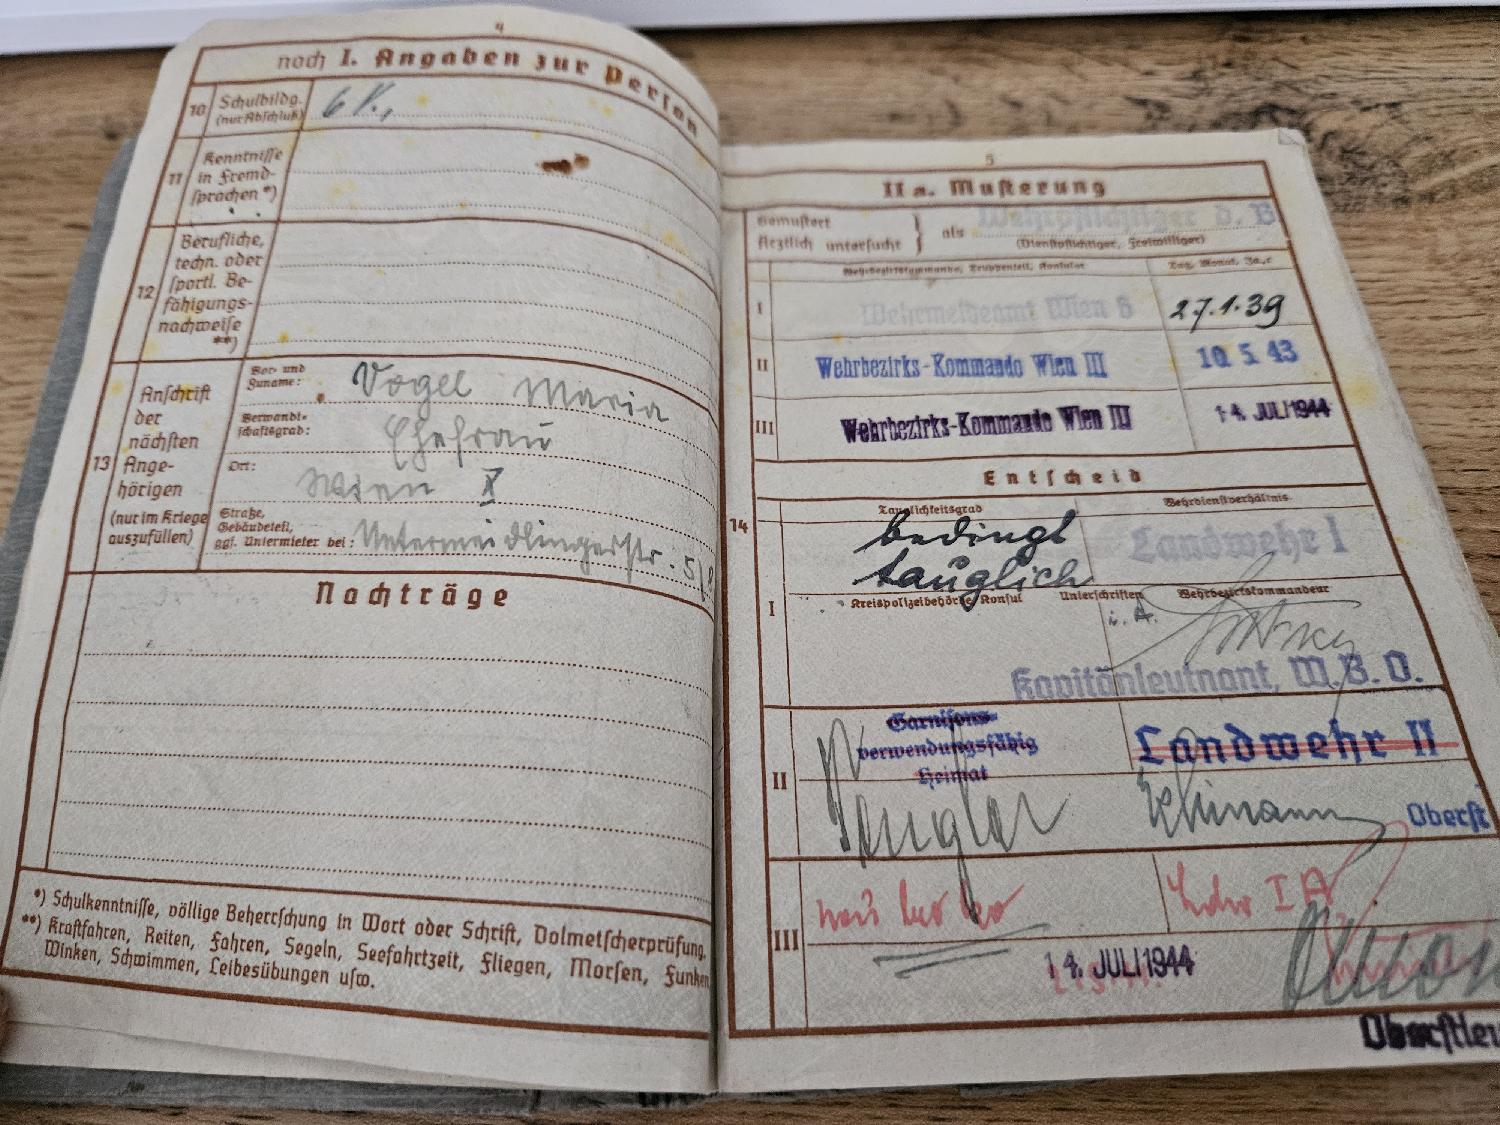 4
noch I. Angaben zur Person
10 Schulbildg. (nur Abschluß) 6 Kl.,
11 Kenntnisse in Fremd- sprachen *)
12 Berufliche, techn. oder sportl. Be- fähigungs- nachweise **)
13 Anschrift der nächsten Ange- hörigen (nur im Kriege auszufüllen)
Vor- und Zuname: Vogel Maria
Verwandt- schaftsgrad: Ehefrau
Ort: Wien X
Straße, Gebäudeteil, ggf. Untermieter bei: Untermeidlingerstr. 5/8
Nachträge
*) Schulkenntnisse, völlige Beherrschung in Wort oder Schrift, Dolmetscherprüfung.
**) Kraftfahren, Reiten, Fahren, Segeln, Seefahrtzeit, Fliegen, Morsen, Funken
Winken, Schwimmen, Leibesübungen usw.
5
II a. Musterung
Gemustert
Ärztlich untersucht } als Wehrpflichtiger d. B
(Dienstpflichtiger, Freiwilliger)
Wehrbezirkskommando, Truppenteil, Konsulat Tag, Monat, Jahr
I Wehrmeldeamt Wien 6 27.1.39
II Wehrbezirks-Kommando Wien III 10. 5. 43
III Wehrbezirks-Kommando Wien III 14. JULI 1944
Entscheid
14
Tauglichkeitsgrad Wehrdienstverhältnis
I bedingt Landwehr I
tauglich
Kreispolizeibehörde, Konsul Unterschriften Wehrbezirkskommandeur
i. A.
Kapitänleutnant, M.B.O.
II Garnisons-
verwendungsfähig Landwehr II
Heimat
Oberst
III
IA
14. JULI 1944
Oberstleu